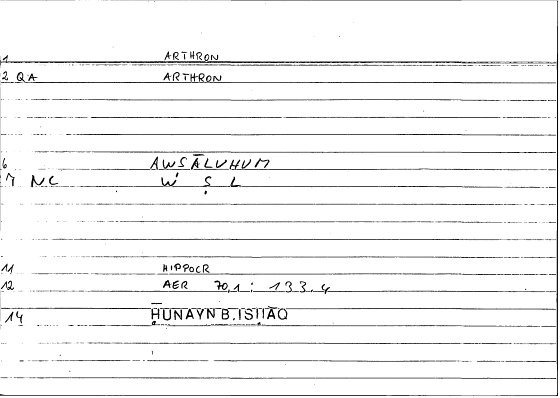 1 ARTHRON
2 QA ARTHRON
6 AWṢĀLUHUM
7 NC W Ṣ L
11 HIPPOCR
12 AER 70,1 : 133.4
14 ḤUNAYN B. ISḤĀQ